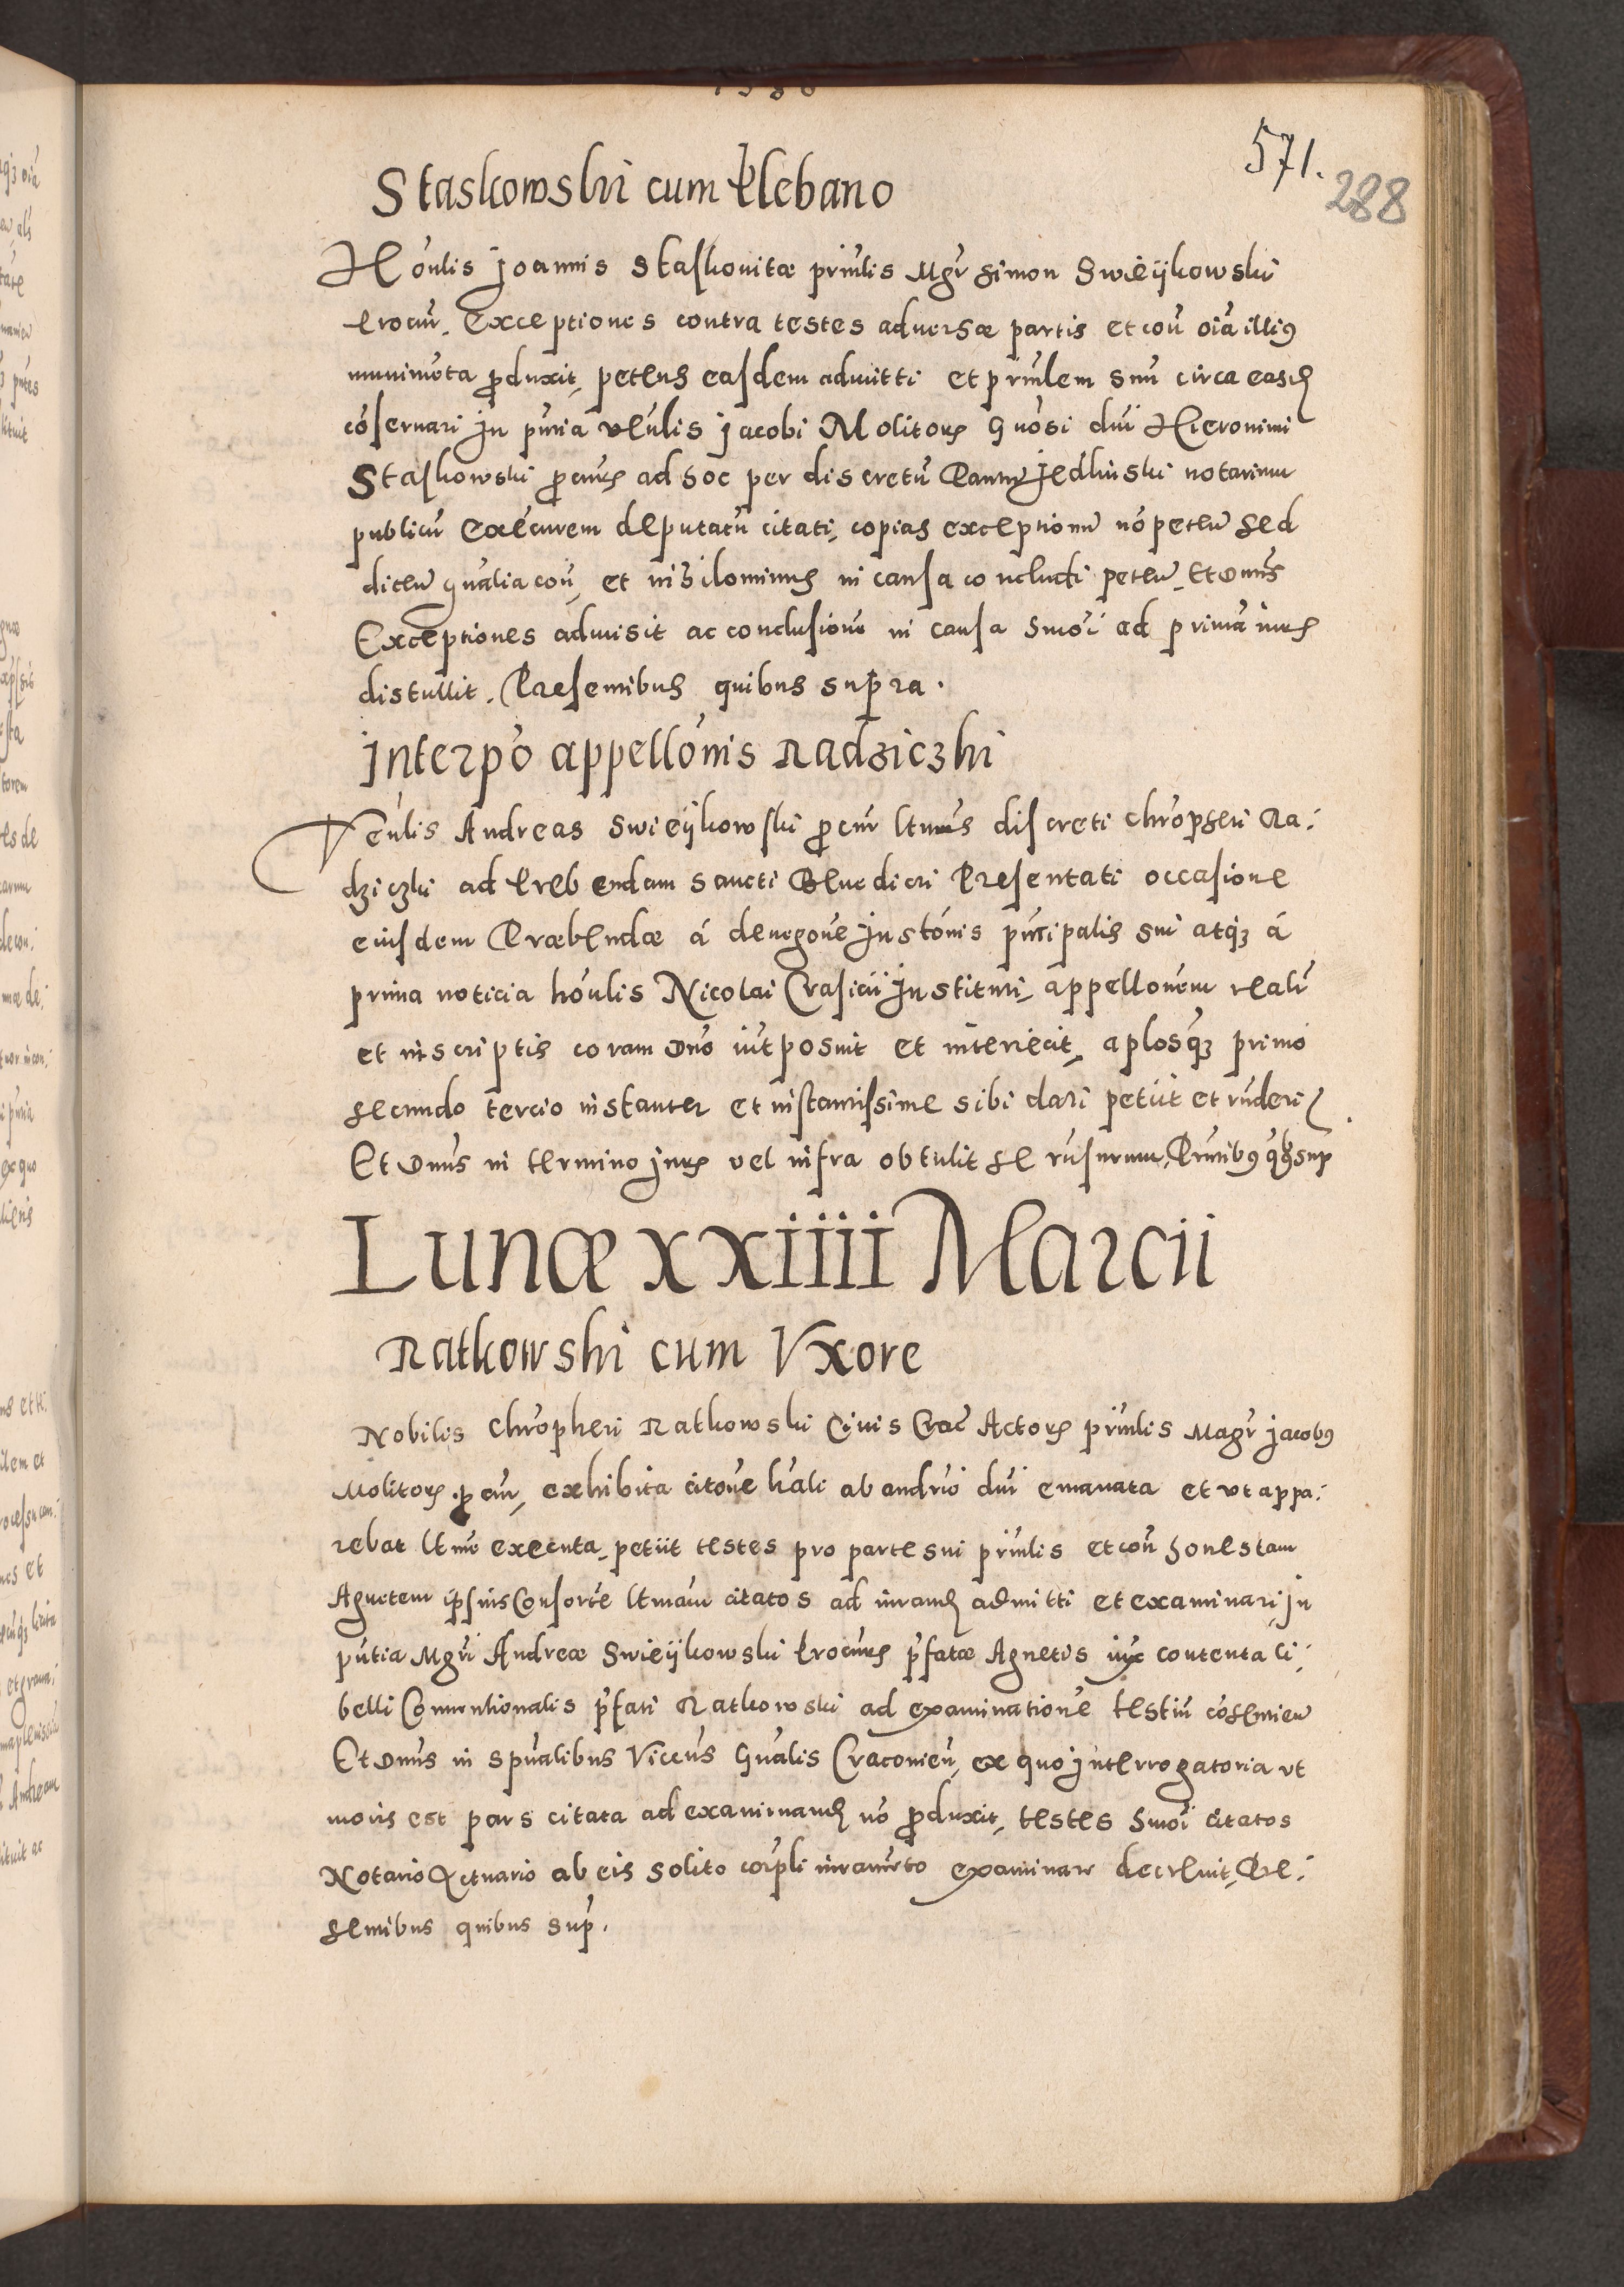 571.
288
Staskowski cum Plebano
Hońlis Joannis Staskovitæ prińlis Mgr̃ Simon Swieÿkowski
Procur̃. Exceptiones contra testes adversæ partis et coñ oiã illiꝯ
munimẽta ꝓduxit, petens easdem admitti et prinlem suũ circa easd
cõservari In pñtia veñlis Jacobi Molitoris Gñosi dñi Hieronimi
Staskowski ꝓcuris ad hoc per discretũ Jedlinski notarium
publicũ exẽcurem deputatũ citati, copias exceptionũ nõ peteñ sed
diceñ gñalia coñ, et nihilominus in causa concludi peteñ, Et Dnus
Exceptiones admisit ac conclusionẽ in causa hmõi ad primã iuris
distullit. Præsentibus quibus supra.
Interpõ appellõnis Radziczki
Veñlis Andreas Swieÿkowski ꝓcur ltimus discreti Chrõpheri Ra-
dziczki ad Prebendam Sancti Benedicti Presentati occasione
eiusdem Præbendæ á denegoñe Instõnis prńcipalis sui atqꝫ á
prima noticia hoñlis Nicolai Crasicii Instituti, appelloñem realẽ
et in scriptis coram Dno iñtposuit et interiecit, aplosqꝫ primo
secundo tercio instanter et instantissime sibi dari petiit et rñderi
Et Dnus in termino Juris vel infra obtulit se rñsurum, Prñtibꝯ qbꝫ sup
Lunæ xxiiii Marcii
Ratkowski cum Vxore
Nobilis Chrõpheri Ratkowski Civis Crac̃ Actoris prińlis Magr̃ Jacobꝯ
Molitoris ꝓcur̃, exhibita citoñe l̃rali ab andrio dñi emanata et vt appa-
rebat ltimẽ executa, petiit testes pro parte sui prińlis et coñ honestam
Agnetem ipsius Consortẽ ltimam citatos ad iurand admitti et examinari In
pñtia Mgr̃i Andreæ Swieÿkowski Procuris p̃fatæ Agnetis iux contenta li-
belli Conventionalis p̃fati Ratkowski ad examinationẽ testiũ cõsentieñ
Et Dnus in spũalibus Viceus Gñalis Cracovieñ, ex quo Interrogatoria vt
moris est pars citata ad examinand nõ ꝓduxit, testes hmõi citatos
Notario Actuario ab eis solito corp̃li iuramẽto examinare decrevit, Pre-
sentibus quibus sup̃.